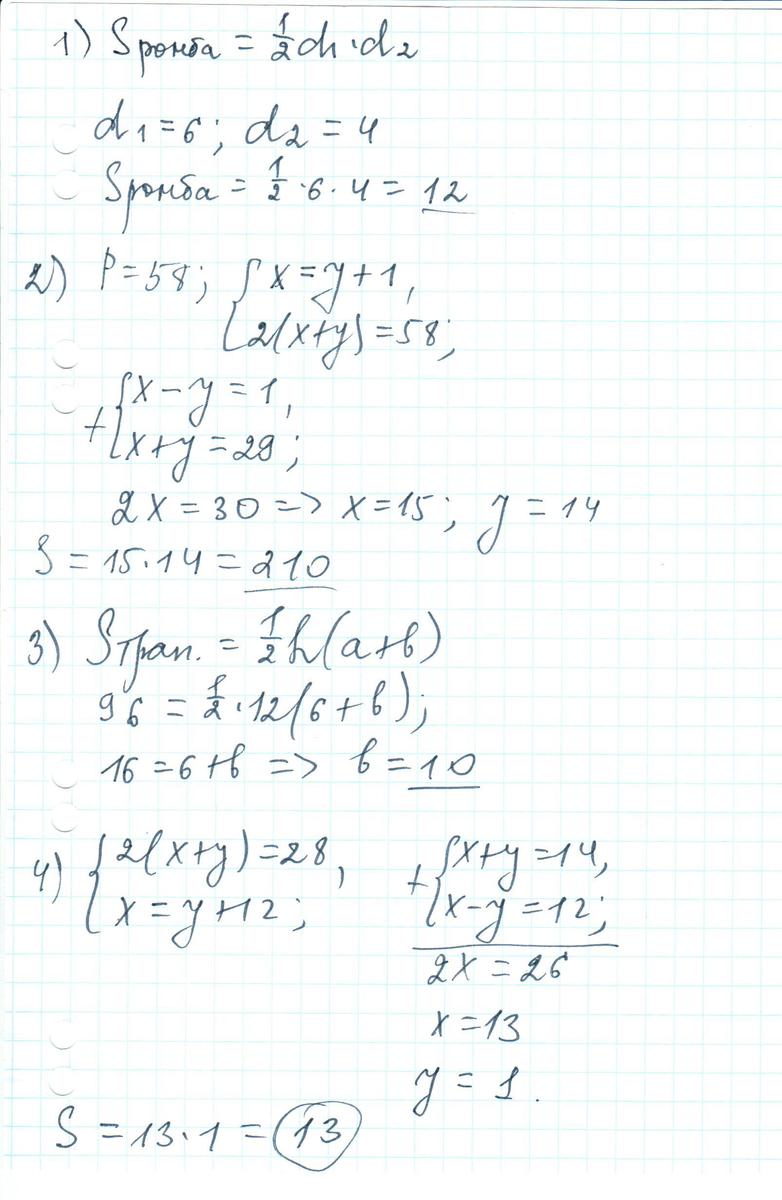 1) Sромба = 1/2 d1·d2
d1=6; d2=4
Sромба = 1/2·6·4=12
2) P=58; { x=y+1,
2(x+y)=58;
+ { x-y=1,
x+y=29;
2x=30 => x=15; y=14
S=15·14=210
3) Sтрап. = 1/2 h(a+b)
96 = 1/2·12(6+b);
16=6+b => b=10
4) { 2(x+y)=28,
x=y+12;
+ { x+y=14,
x-y=12;
2x=26
x=13
y=1.
S=13·1=13